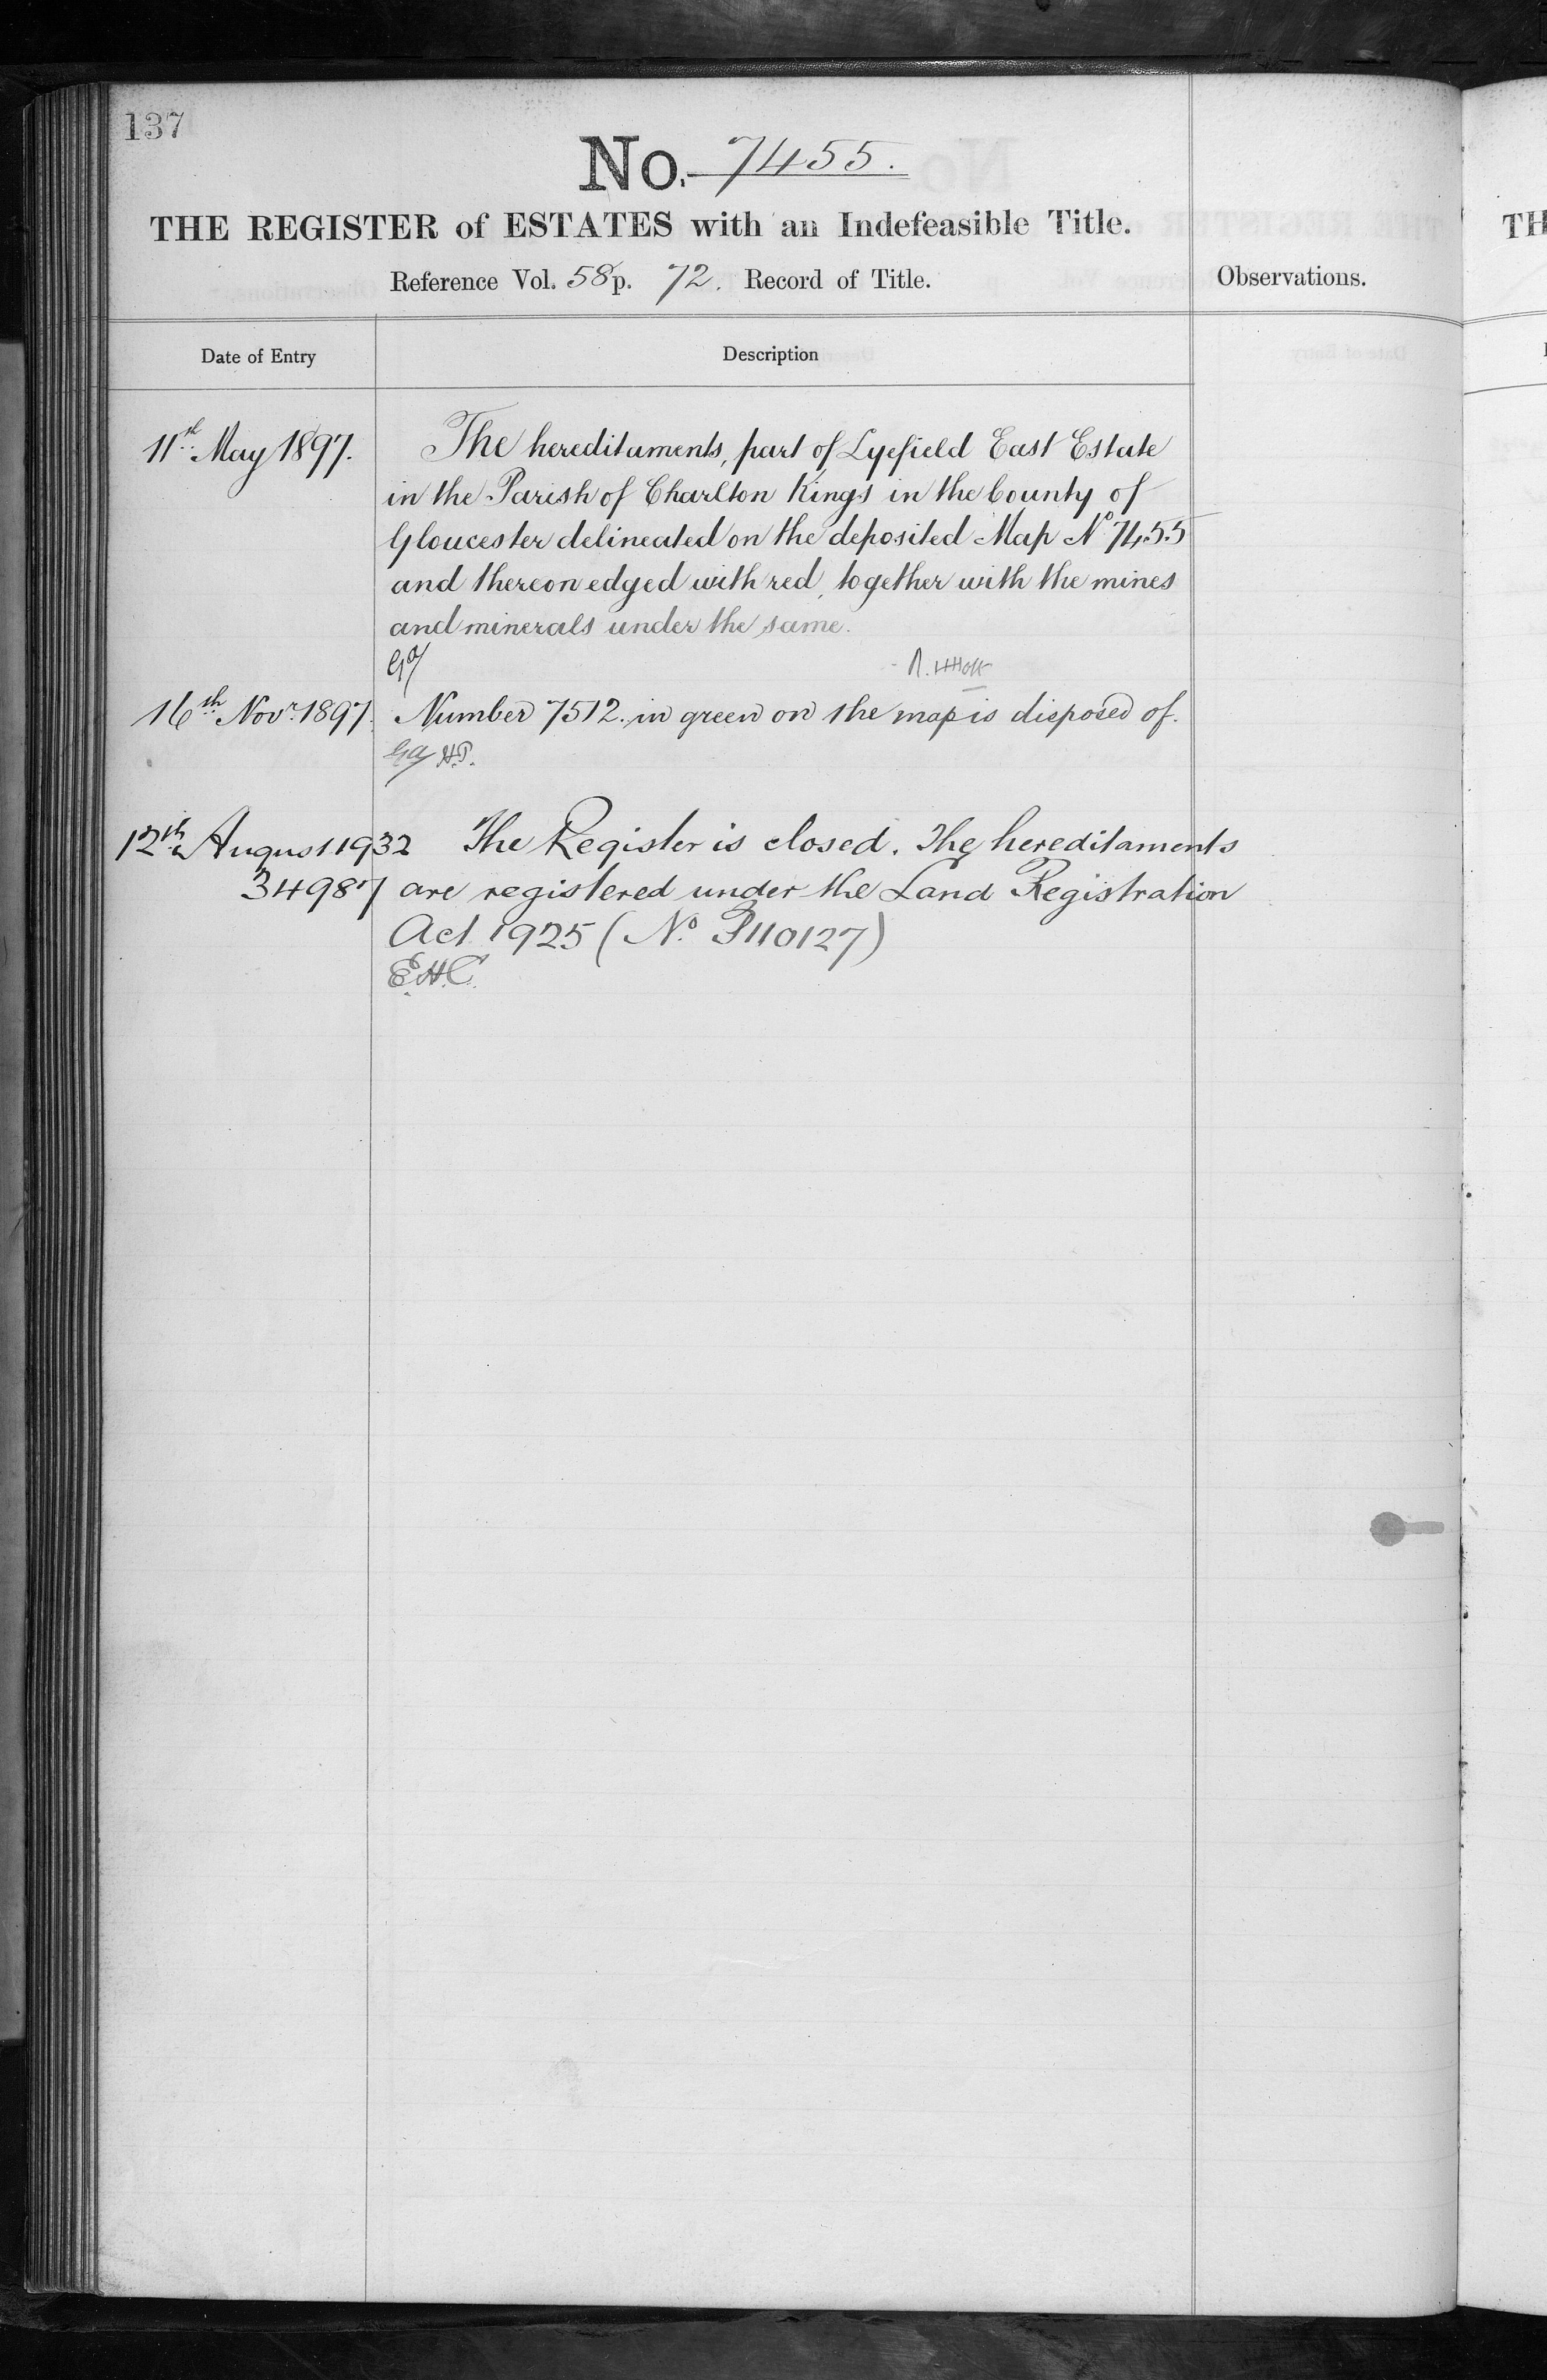 137
No. 7455.
THE REGISTER of ESTATES with an Indefeasible Title.
Reference Vol. 58 p. 72. Record of Title.
Observations.
Date of Entry
Description
11th May 1897. The hereditaments, part of Lyefield East Estate
in the Parish of Charlton Kings in the County of
Gloucester delineated on the deposited Map No 7455
and thereon edged with red, together with the mines
and minerals under the same.
16th Novr. 1897. Number 7512. in green on the map is disposed of.
H.P.
12th August 1932 The Register is closed. The hereditaments
34987 are registered under the Land Registration
Act 1925 (No. P110127)
E.H.C.
TH